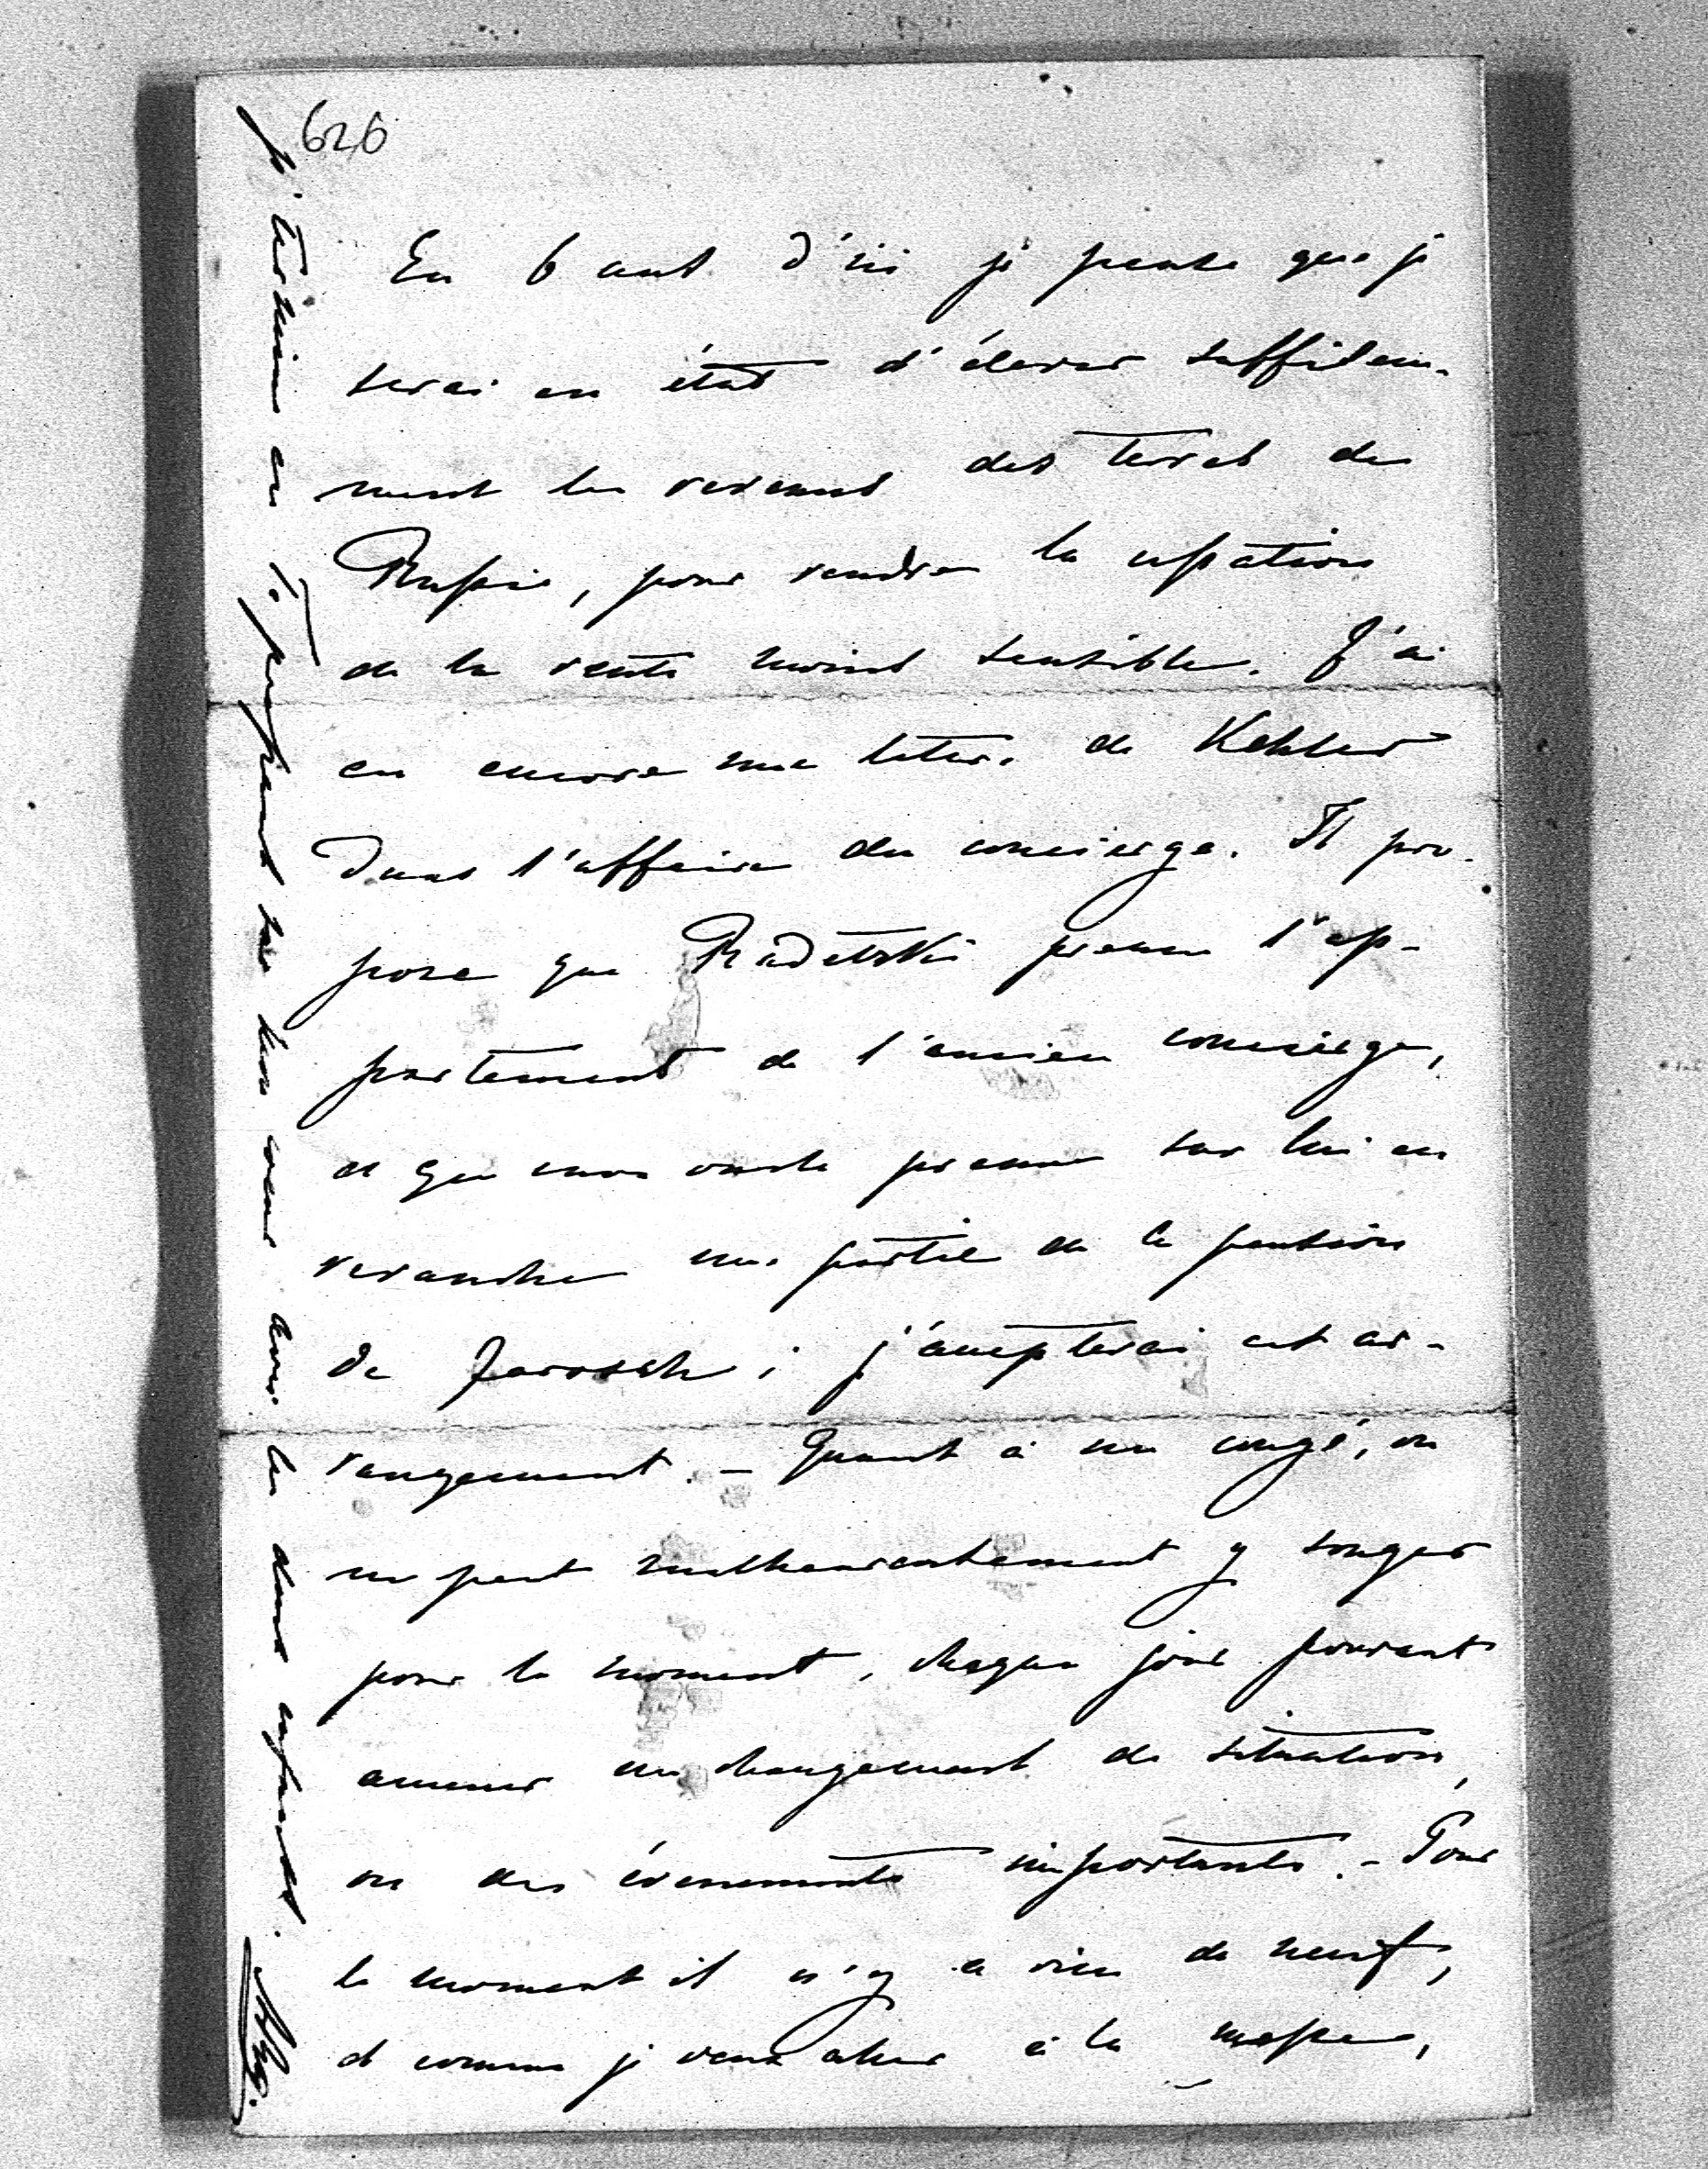 626
En 6 ans d'ici je pense que je
serai en état d'élever suffisam-
ment les revenus des terres de
Russie, pour rendre la cessation
de la rente moins sensible. J'ai
eu encore une lettre de Kehler
dans l'affaire du concierge. Il pro-
pose que Radetzki prenne l'ap-
partement de l'ancien concierge,
et que mon oncle prenne sur lui en
revanche une partie de la pension
de Jarosch; j'accepterai cet ar-
rangement. – Quant à un congé, on
ne peut malheureusement y songer
pour le moment, chaque jour pouvant
amener un changement de situation,
ou des évènements importants. – Pour
le moment il n'y a rien de neuf,
et comme je veux aller à la messe,
je termine en Te pressant sur mon cœur avec les deux enfants.